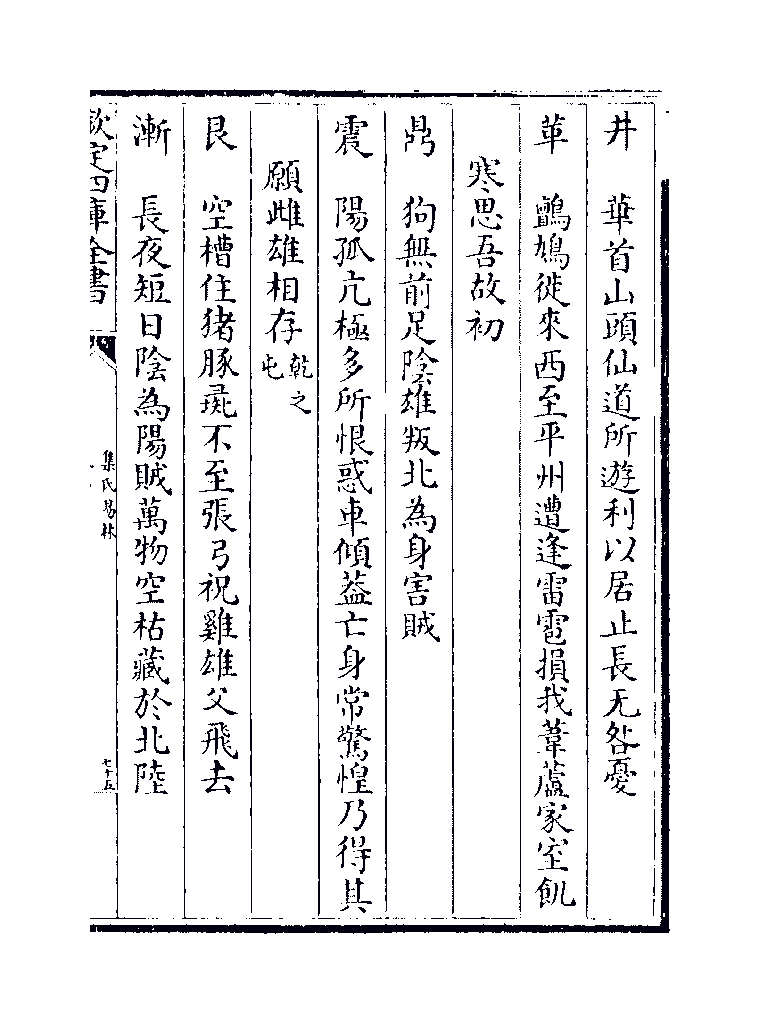 井　華首山頭仙道所遊利以居止長无咎憂
革　鸇鳩徙來西至平州遭逢雷雹損我葦蘆家室飢
寒思吾故初
鼎　狗無前足陰雄叛北為身害賊
震　陽孤亢極多所恨惑車傾葢亡身常驚惶乃得其
願雌雄相存乾之屯
艮　空槽住猪豚彘不至張弓祝雞雄父飛去
漸　長夜短日陰為陽賊萬物空枯藏於北陸
欽定四庫全書
焦氏易林
七十五